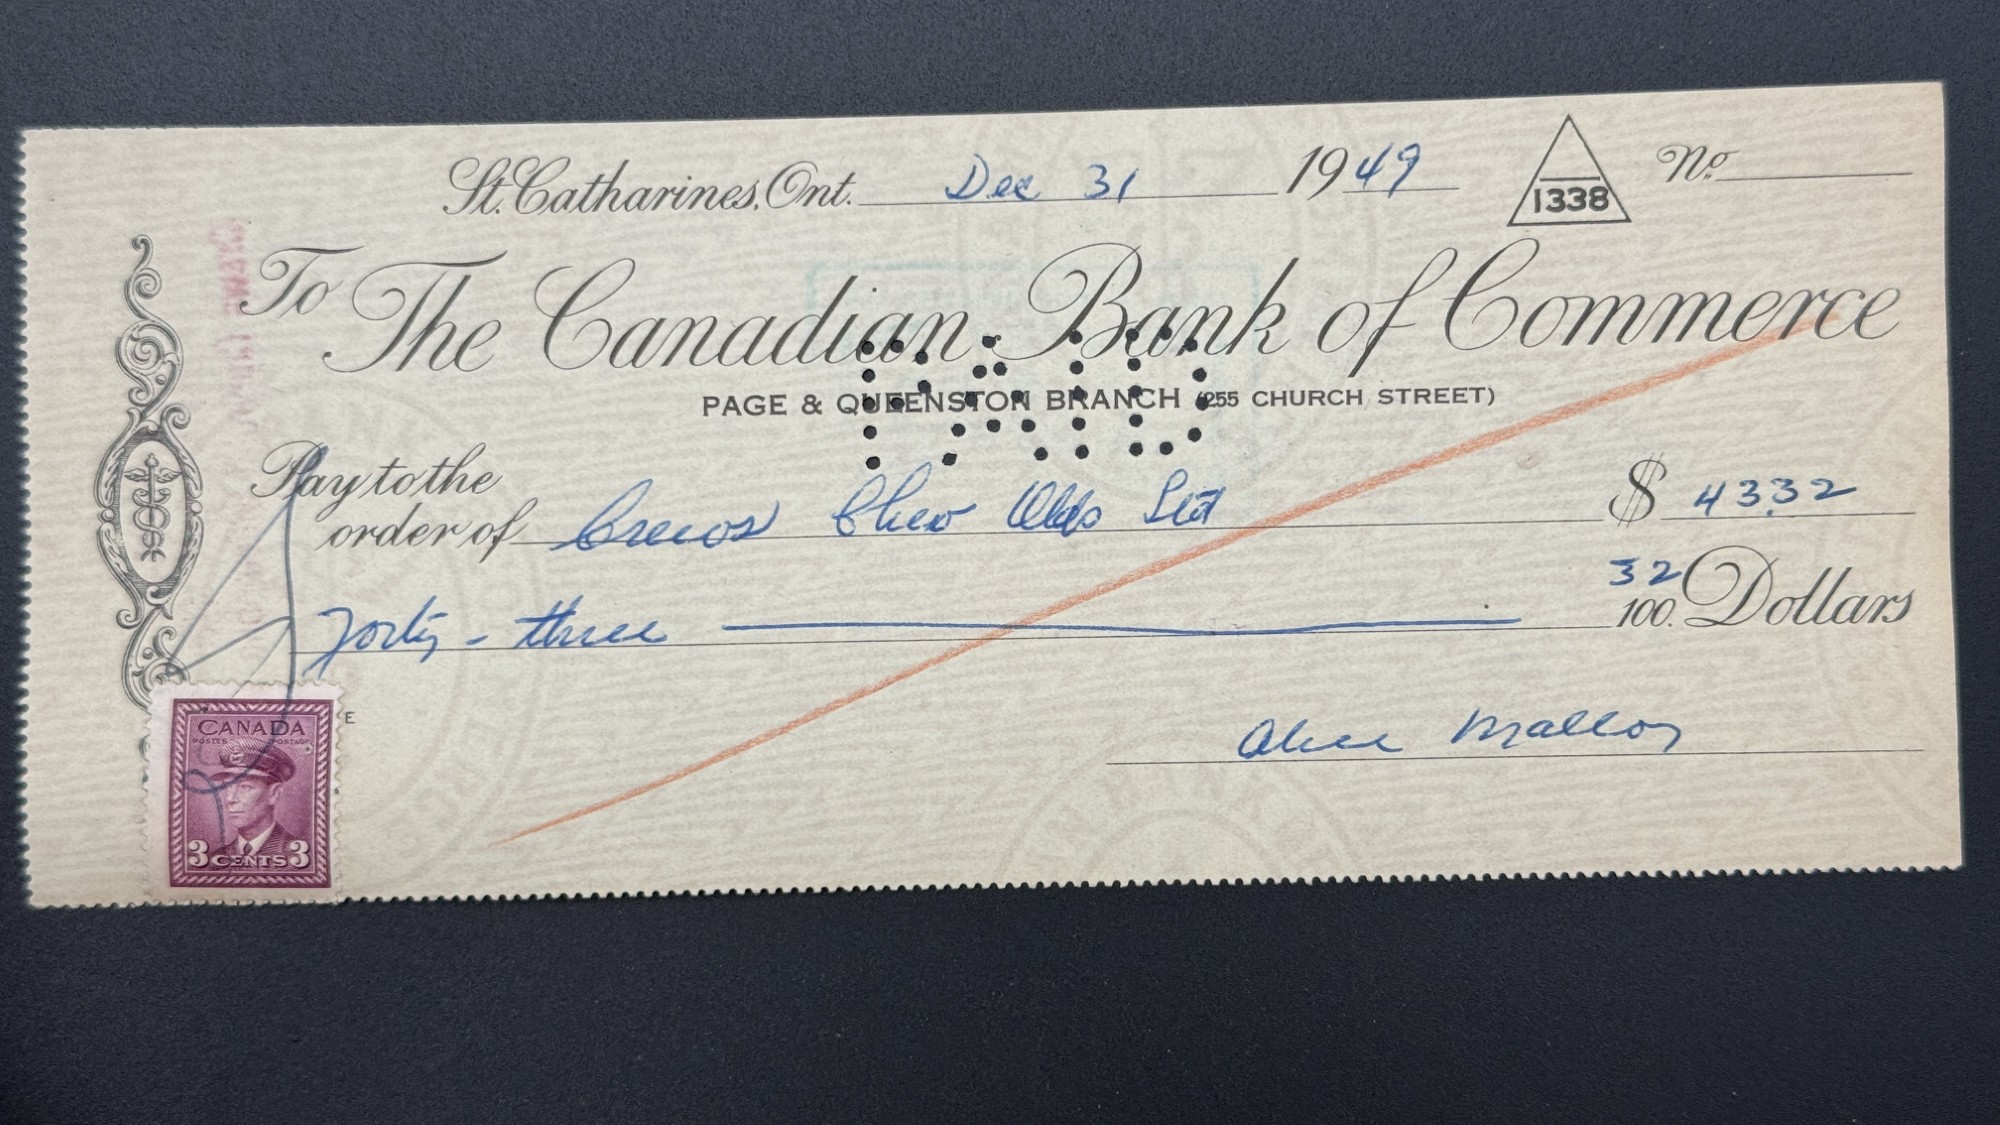 St. Catharines, Ont. Dec 31 1949
1338
No.
To The Canadian Bank of Commerce
PAID
PAGE & QUEENSTON BRANCH (255 CHURCH STREET)
Pay to the
order of Chew Olds Ltd $ 43.32
Forty - three 32/100 Dollars
E
Alice Malloy
CANADA
POSTES POSTAGE
3 CENTS 3